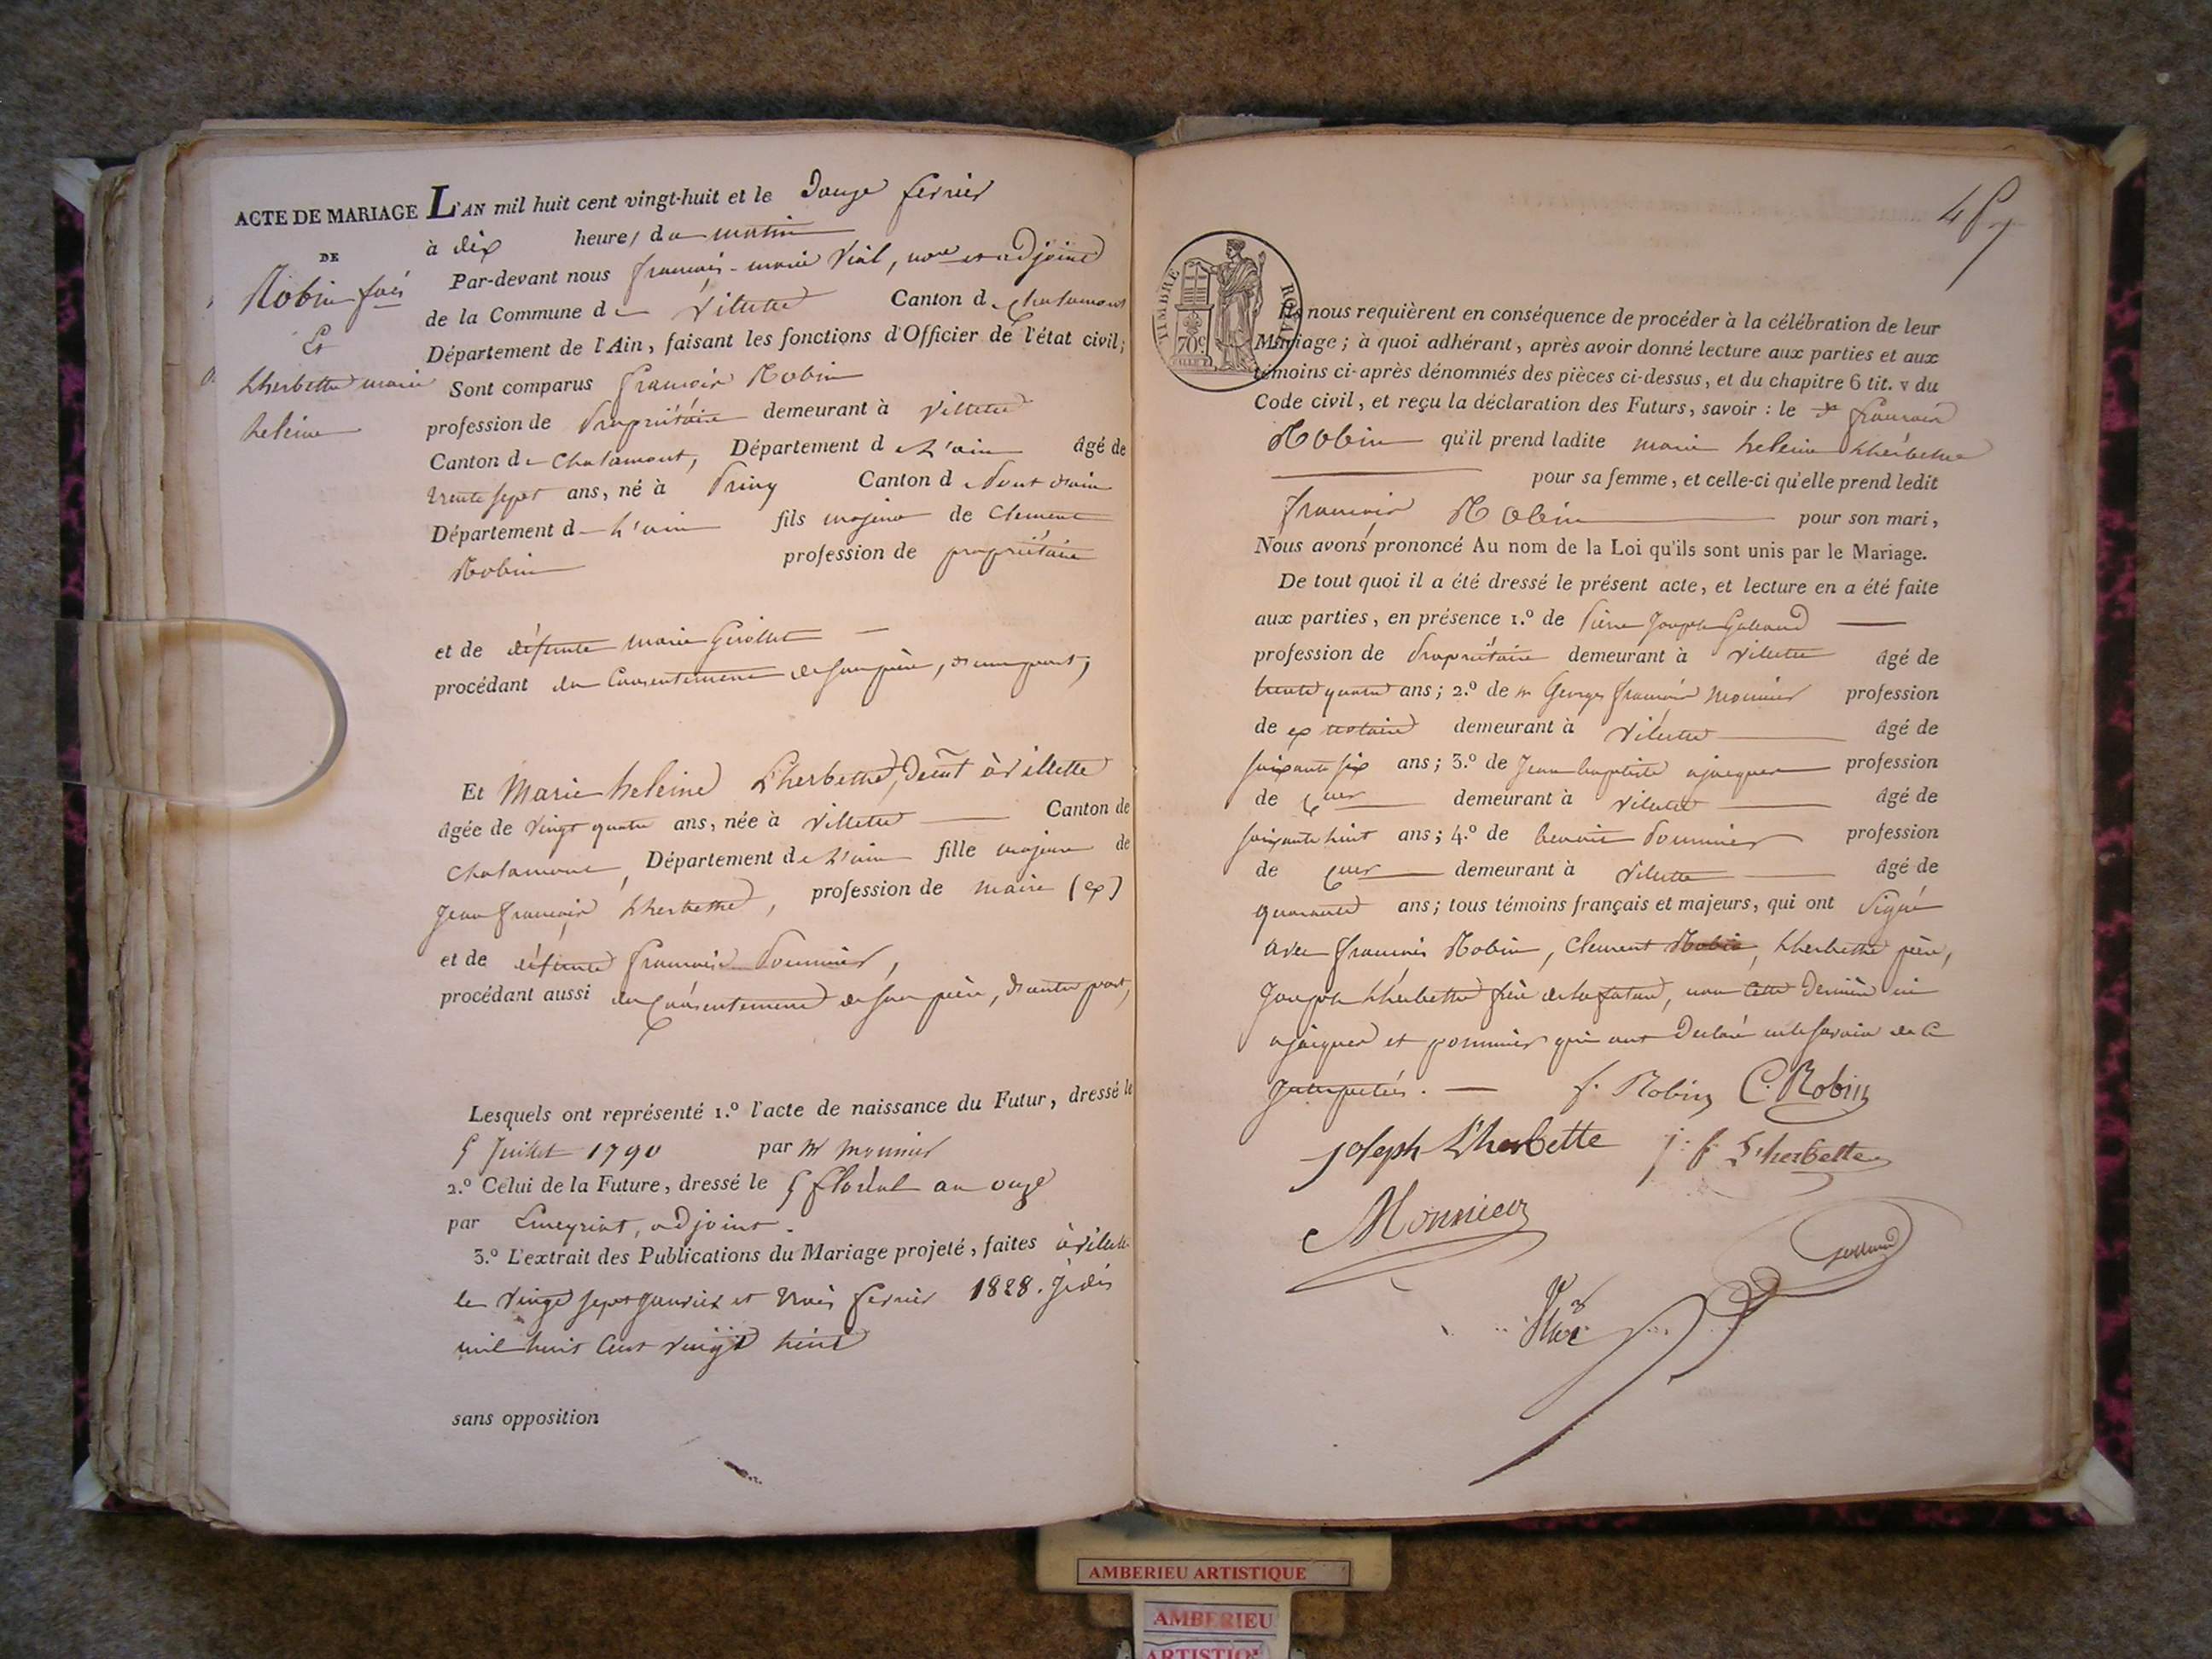 ACTE DE MARIAGE L'AN mil huit cent vingt-huit et le Douze fevrier
DE
Robin fois
Et
Lherbette marie
heleine
à dix heures du matin
Par-devant nous françois-marie Vial, nore et adjoint
de la Commune de Villette Canton de Chalamont
Département de l'Ain, faisant les fonctions d'Officier de l'état civil;
Sont comparus françois Robin
profession de Propriétaire demeurant à Villette
Canton de Chalamont, Département de L'ain âgé de
trente sept ans, né à Priay Canton de Pont d'ain
Département de L'ain fils majeur de Clement
Robin profession de propriétaire
et de défunte marie Girollet
procédant du Consentement de son père, d'une part,
Et Marie heleine Lherbette, demt à Villette
âgée de vingt quatre ans, née à Villette Canton de
Chalamont, Département de L'ain fille majeure de
Jean françois Lherbette, profession de maire (ex)
et de défunte françoise Pommier,
procédant aussi du Consentement de son père, d'autre part,
Lesquels ont représenté 1.º l'acte de naissance du Futur, dressé le
5 Juillet 1790 par Mr monnier
2.º Celui de la Future, dressé le 5 floréal an onze
par Limeyriat, adjoint.
3.º L'extrait des Publications du Mariage projeté, faites à Villette
le vingt sept janvier et trois fevrier 1828. Je dis
mil huit cent vingt huit
sans opposition
457
TIMBRE ROYAL
70c
Ils nous requièrent en conséquence de procéder à la célébration de leur
Mariage; à quoi adhérant, après avoir donné lecture aux parties et aux
témoins ci-après dénommés des pièces ci-dessus, et du chapitre 6 tit. v du
Code civil, et reçu la déclaration des Futurs, savoir: le françois
Robin qu'il prend ladite marie heleine Lherbette
pour sa femme, et celle-ci qu'elle prend ledit
françois Robin pour son mari,
Nous avons prononcé Au nom de la Loi qu'ils sont unis par le Mariage.
De tout quoi il a été dressé le présent acte, et lecture en a été faite
aux parties, en présence 1.º de Pierre Joseph Galland
profession de Propriétaire demeurant à Villette âgé de
trente quatre ans; 2.º de Mr Georges françois Monnier profession
de ex notaire demeurant à Villette âgé de
soixante six ans; 3.º de Jean baptiste ajacques profession
de demeurant à Villette âgé de
soixante huit ans; 4.º de benoit Pommier profession
de demeurant à Villette âgé de
quarante ans; tous témoins français et majeurs, qui ont Signé
avec françois Robin, Clement Robin, Lherbette père,
Joseph Lherbette frère de la future, non cette dernière ni
ajacques et pommier qui ont Declaré ne le savoir de ce
Interpellés. f. Robin C. Robin
joseph L'herbette j. f. Lherbette
Monnier
galland
Vial
AMBERIEU ARTISTIQUE
AMBERIEU
ARTISTIQUE